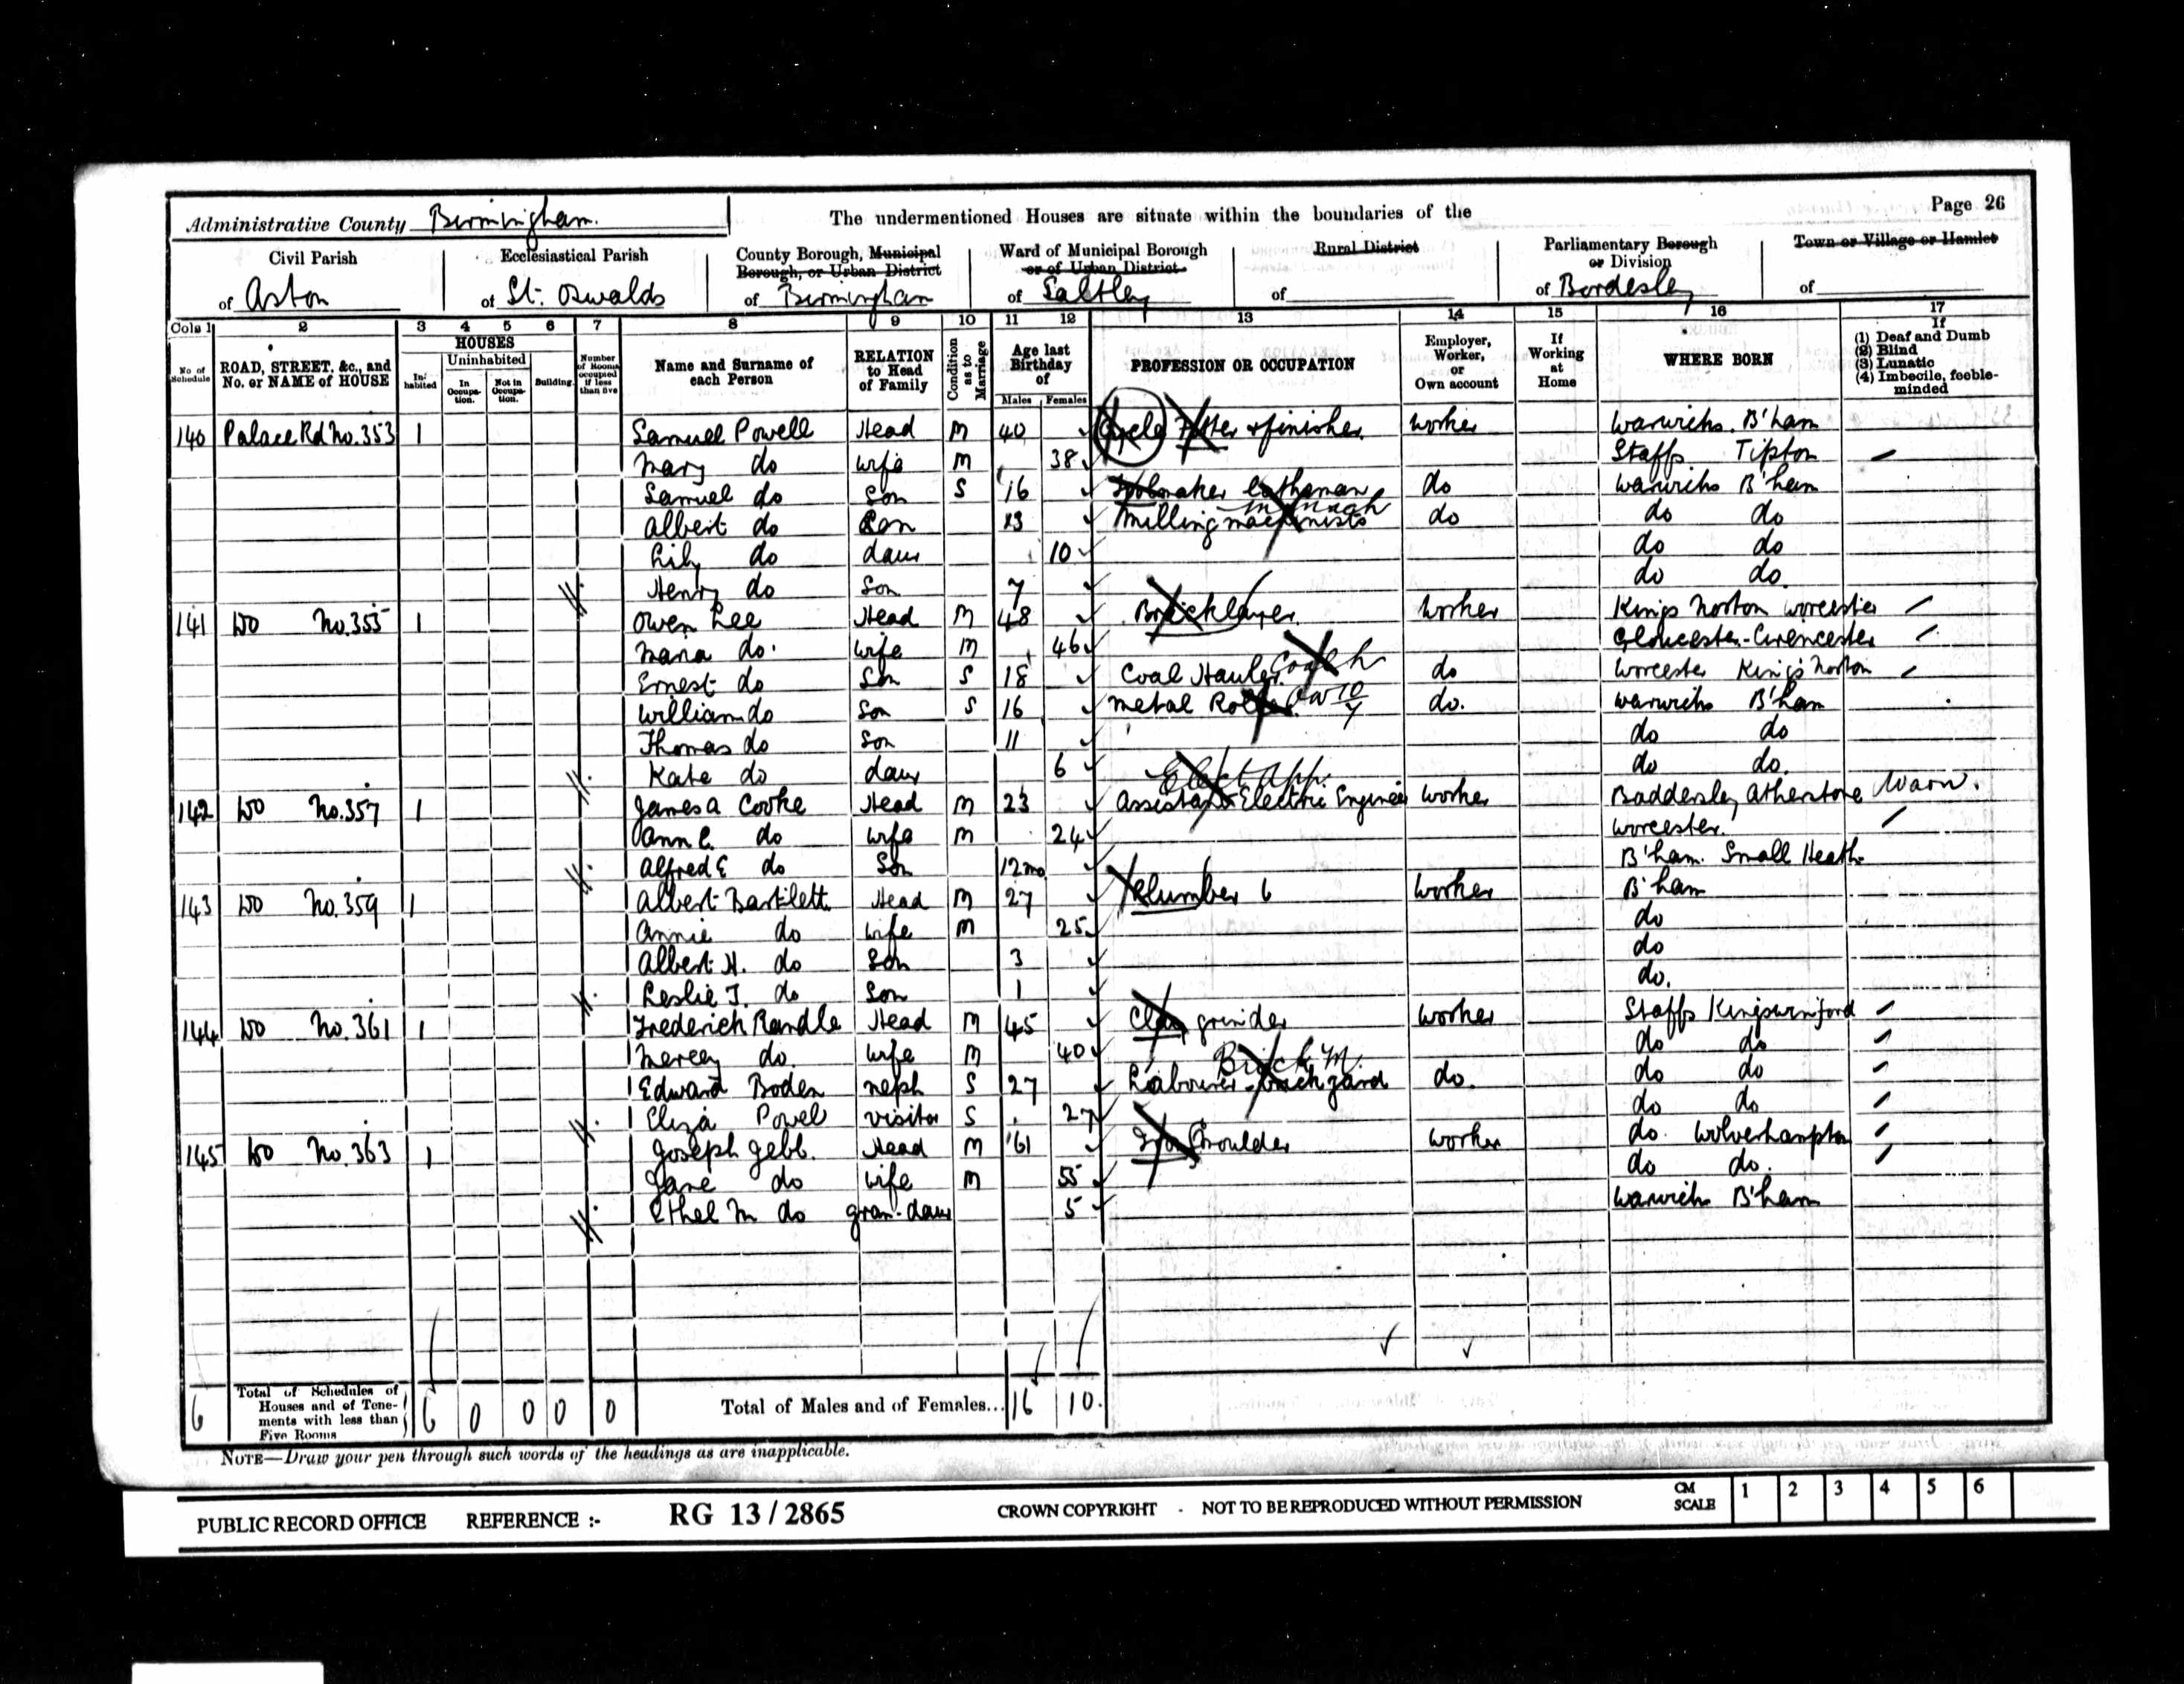 Page 26
Administrative County Birmingham. The undermentioned Houses are situate within the boundaries of the
Civil Parish of Aston
Ecclesiastical Parish of St. Oswalds
County Borough, Municipal Borough, or Urban District of Birmingham
Ward of Municipal Borough or of Urban District of Saltley
Rural District of
Parliamentary Borough or Division of Bordesley
Town or Village or Hamlet of
Cols 1 2 3 4 5 6 7 8 9 10 11 12 13 14 15 16 17
No of Schedule
ROAD, STREET, &c., and No. or NAME of HOUSE
HOUSES
Inhabited
Uninhabited
In Occupation.
Not in Occupation.
Building.
Number of Rooms occupied if less than five
Name and Surname of each Person
RELATION to Head of Family
Condition as to Marriage
Age last Birthday of
Males Females
PROFESSION OR OCCUPATION
Employer, Worker, or Own account
If Working at Home
WHERE BORN
If (1) Deaf and Dumb (2) Blind (3) Lunatic (4) Imbecile, feeble-minded
140 Palace Rd No. 353 1 Samuel Powell Head M 40 Cycle Fitter & finisher worker Warwicks. B'ham
Mary do wife M 38 Staffs Tipton
Samuel do Son S 16 Toolmaker Latheman do Warwicks B'ham
Albert do Son 13 Milling machinists do do do
Lily do daur 10 do do
Henry do Son 7 do do.
141 Do No. 355 1 Owen Lee Head M 48 Bricklayer. Worker Kings Norton Worcester
Maria do. wife M 46 Gloucester-Cirencester
Ernest do Son S 18 Coal Hauler Coal h do Worcester King's Norton
William do Son S 16 Metal Roller do. Warwicks B'ham
Thomas do Son 11 do do
Kate do daur 6 do do.
Elect App.
142 Do No. 357 1 James A Cooke Head M 23 Assistant Electric Engineer worker Baddersley Atherstone Warw.
Ann E. do wife M 24 Worcester.
Alfred E do Son 12 mo B'ham. Small Heath
143 Do No. 359 1 Albert Bartlett Head M 27 Plumber 6 Worker B'ham
Annie do wife M 25 do
Albert H. do Son 3 do
Leslie J. do Son 1 do.
144 Do No. 361 1 Frederick Randle Head M 45 Clay grinder worker Staffs Kingswinford
Mercy do. wife M 40 do do
Brick M.
Edward Boden neph S 27 Labourer brickyard do. do do
Eliza Powel visitor S 27 do do
145 Do No. 363 1 Joseph Jebb. Head M 61 Iron Moulder worker do. Wolverhampton
Jane do wife M 55 do do.
Ethel M do gran-daur 5 Warwicks B'ham
6 Total of Schedules of Houses and of Tenements with less than Five Rooms 6 0 0 0 0 Total of Males and of Females... 16 10.
NOTE—Draw your pen through such words of the headings as are inapplicable.
PUBLIC RECORD OFFICE REFERENCE :- RG 13 / 2865 CROWN COPYRIGHT - NOT TO BE REPRODUCED WITHOUT PERMISSION CM SCALE 1 2 3 4 5 6